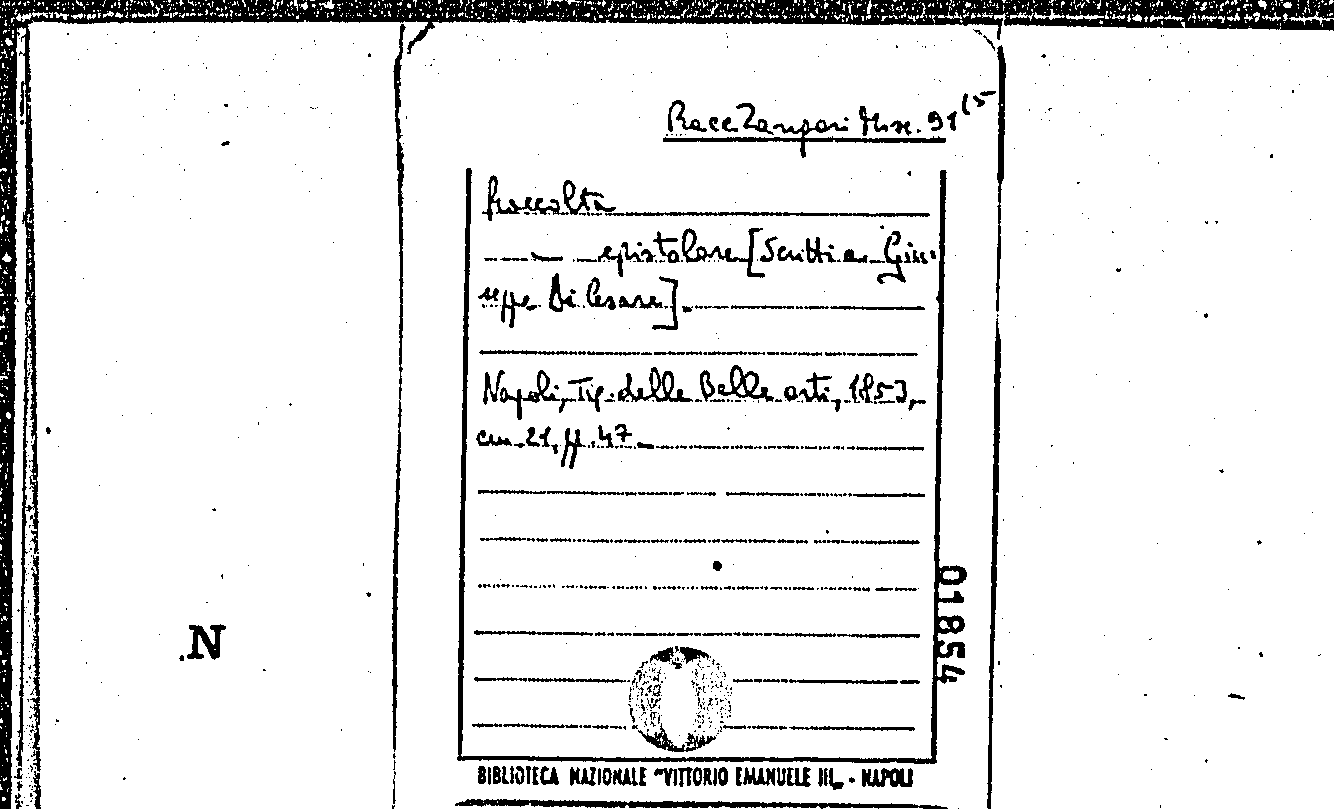 Racc. Zangari Misc. 91 (5
Raccolta
— epistolare [Scritti a Giu-
seppe Di Cesare].
Napoli, Tip. delle Belle arti, 1853,
cm. 21, pp. 47.
N
01854
BIBLIOTECA NAZIONALE "VITTORIO EMANUELE III„ - NAPOLI